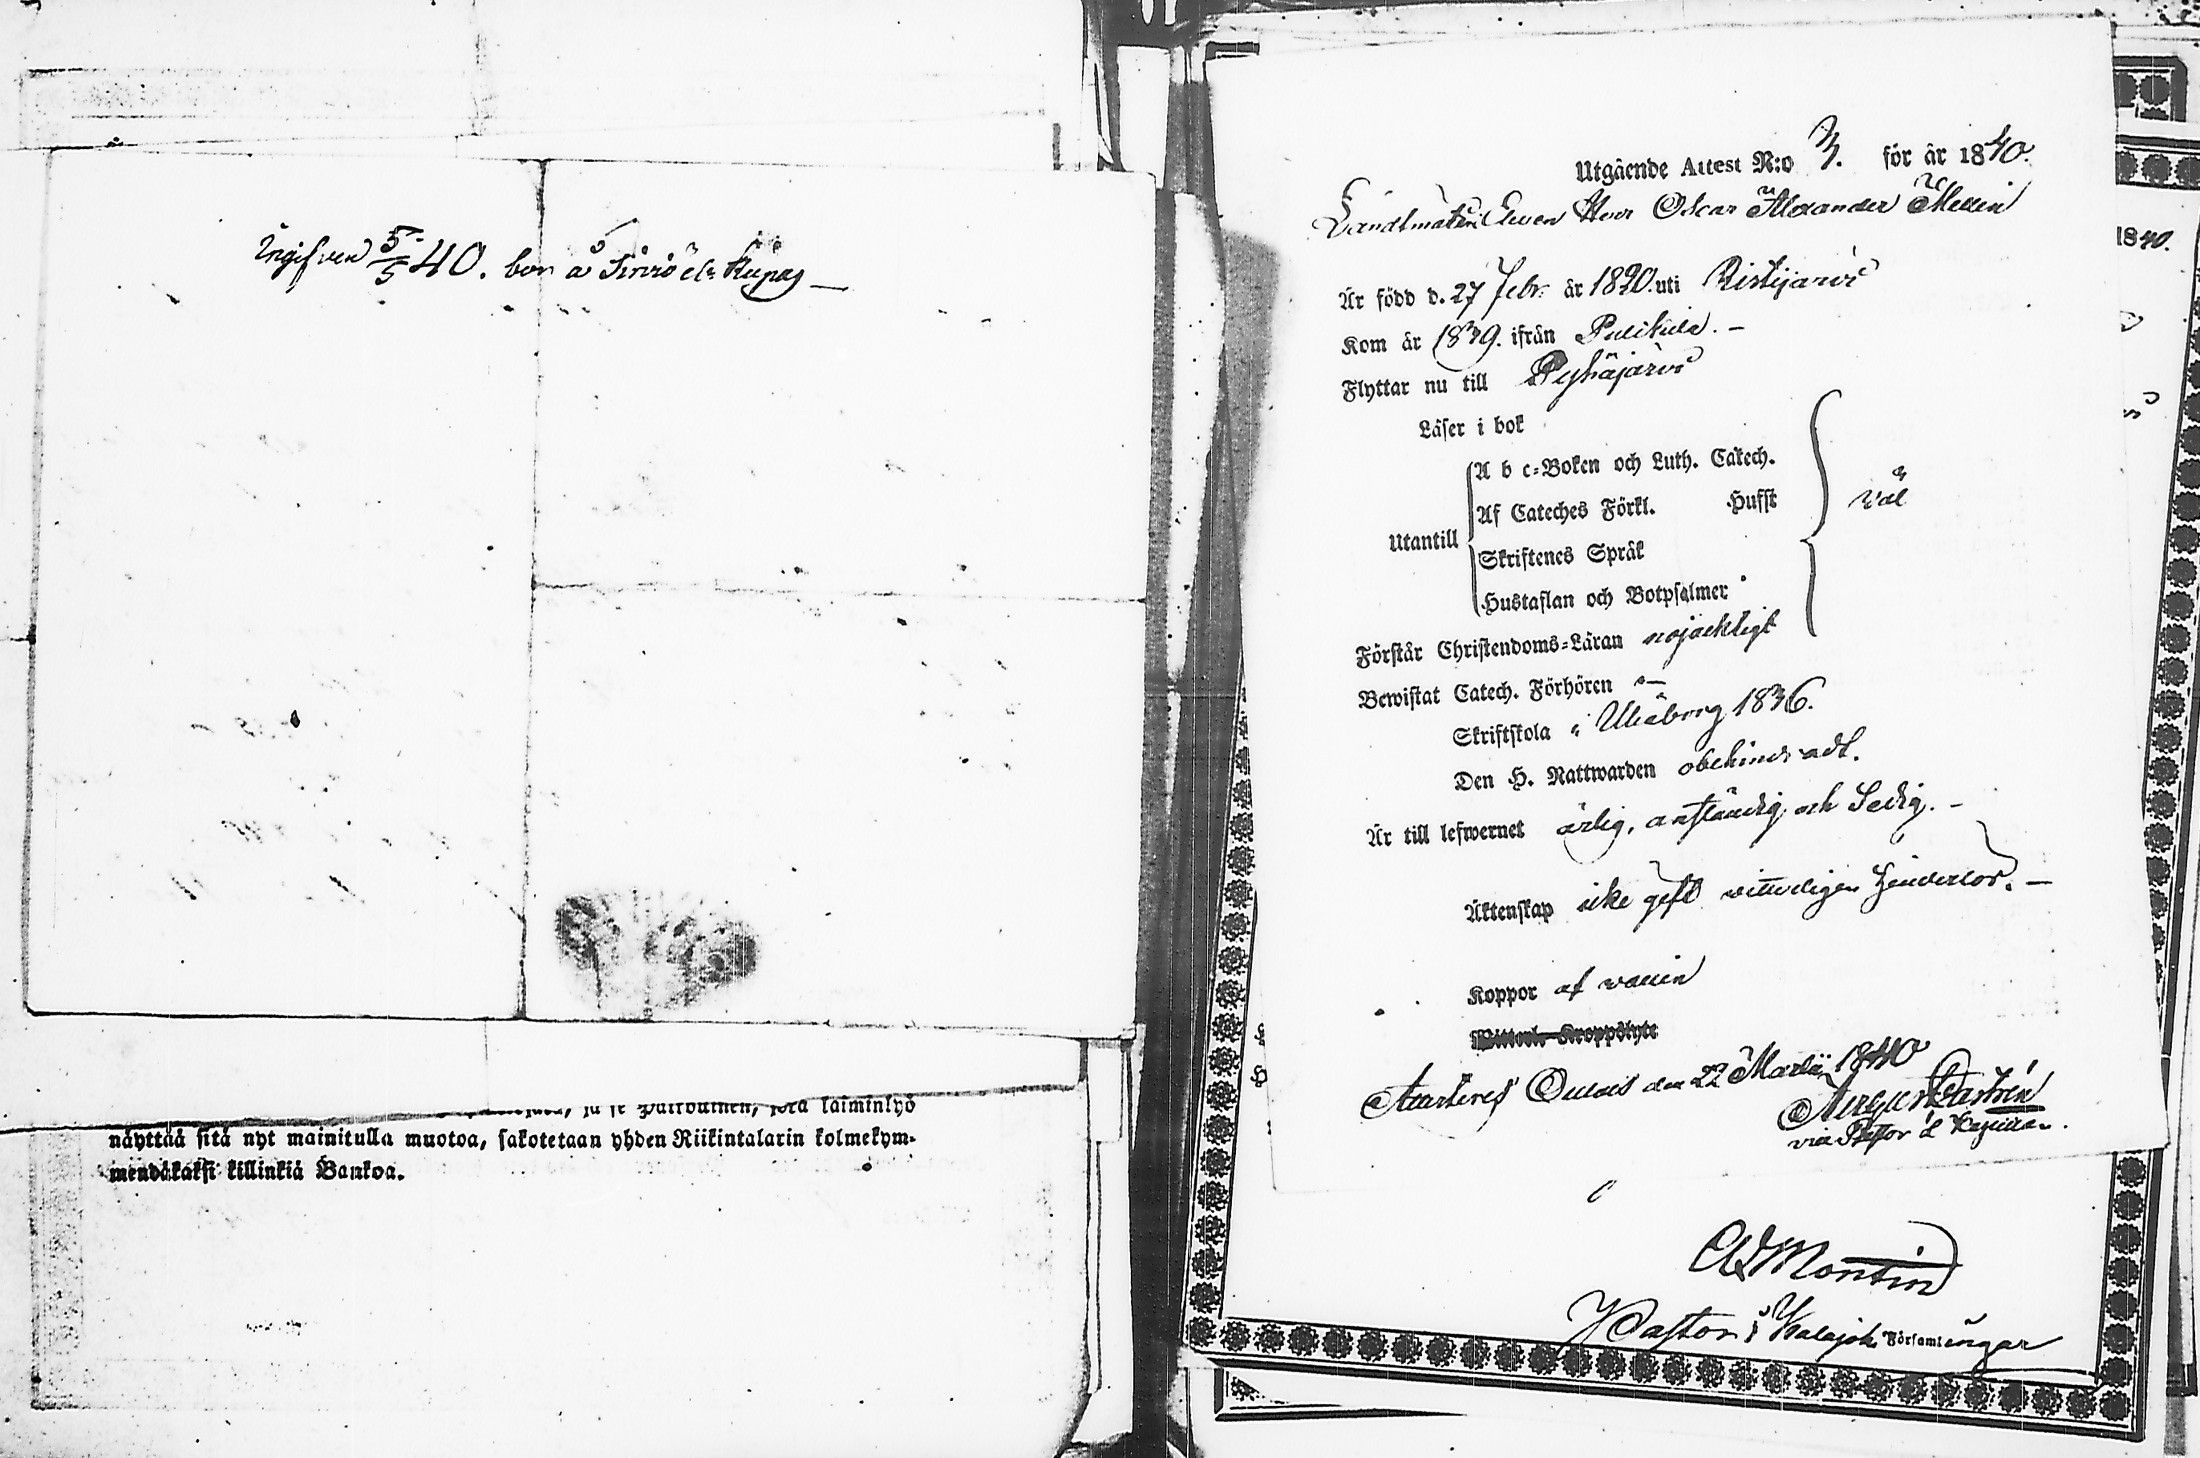 Ingifven 5/5 40. bor å
näyttää sitä nyt mainitulla muotoa, sakotetaan yhden Riikintalarin kolmekym-
mendäkaksi killinkiä Bankoa.
Utgående Attest N:o 3. för år 1840.
Landtmäteri Eleven Herr Oscar Alexander
Är född d. 27 Febr. år 1820 uti Ristijärvi
Kom år 1839. ifrån Pulkila. –
Flyttar nu till Pyhäjärvi
Läser i bok
Utantill
A b c-Boken och Luth. Catech.
Af Cateches Förkl. Hufst
Skriftenes Språk
Hustaflan och Botpsalmer
väl
Förstår Christendoms-Läran nöjacktigt
Bewistat Catech. Förhören –
Skriftskola i Uleåborg 1836.
Den H. Nattwarden obehindradt.
Är till lefwernet ärlig, anständig och Sedig. –
Äktenskap icke gift vitterligen hinderlös. –
Koppor af vaccin
Witterl. Kroppslyte
Attesteras Oulais den 22 Martii 1840
August Castrén
vice Pastor &
1840.
Montin
Pastor i Kalajok. Församlingar